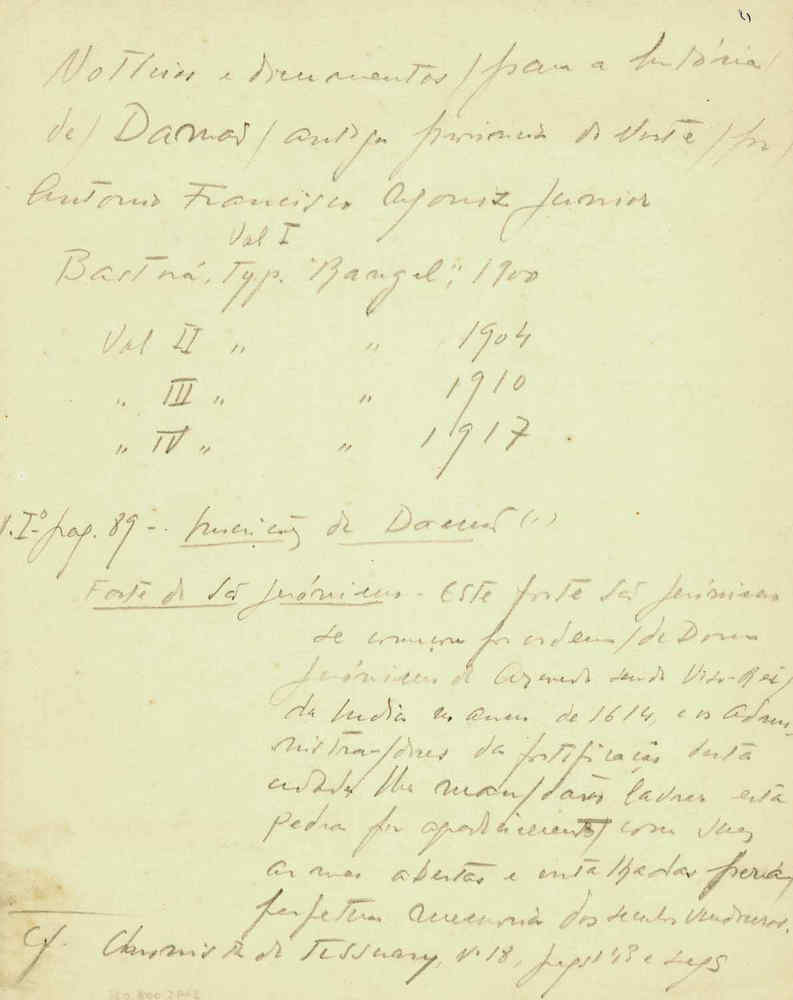 Noticias e documentos / para a história /
de / Damão / antiga provincia do Norte / por /
Antonio Francisco Moniz Junior
Vol I
Bastorá, Typ. "Rangel", 1900
Vol II " " 1904
" III " " 1910
" IV " " 1917
V. Iº pag. 89 - Inscrições de Damão (1)
Forte de São Jerónimo - Este forte São Jerónimo
se começou por ordem / de Dom
Jerónimo de Azevedo sendo Viso-Rei /
da India no anno de 1614, e os admi-
nistra/dores da fortificação desta
cidade lhe man/darão lavrar esta
pedra por agradecimento / com suas
armas abertas e entalhadas pera /
perpetua memoria dos seculos vindouros.
Cf. Chronista de Tissuary, nº 18, pags. e segs